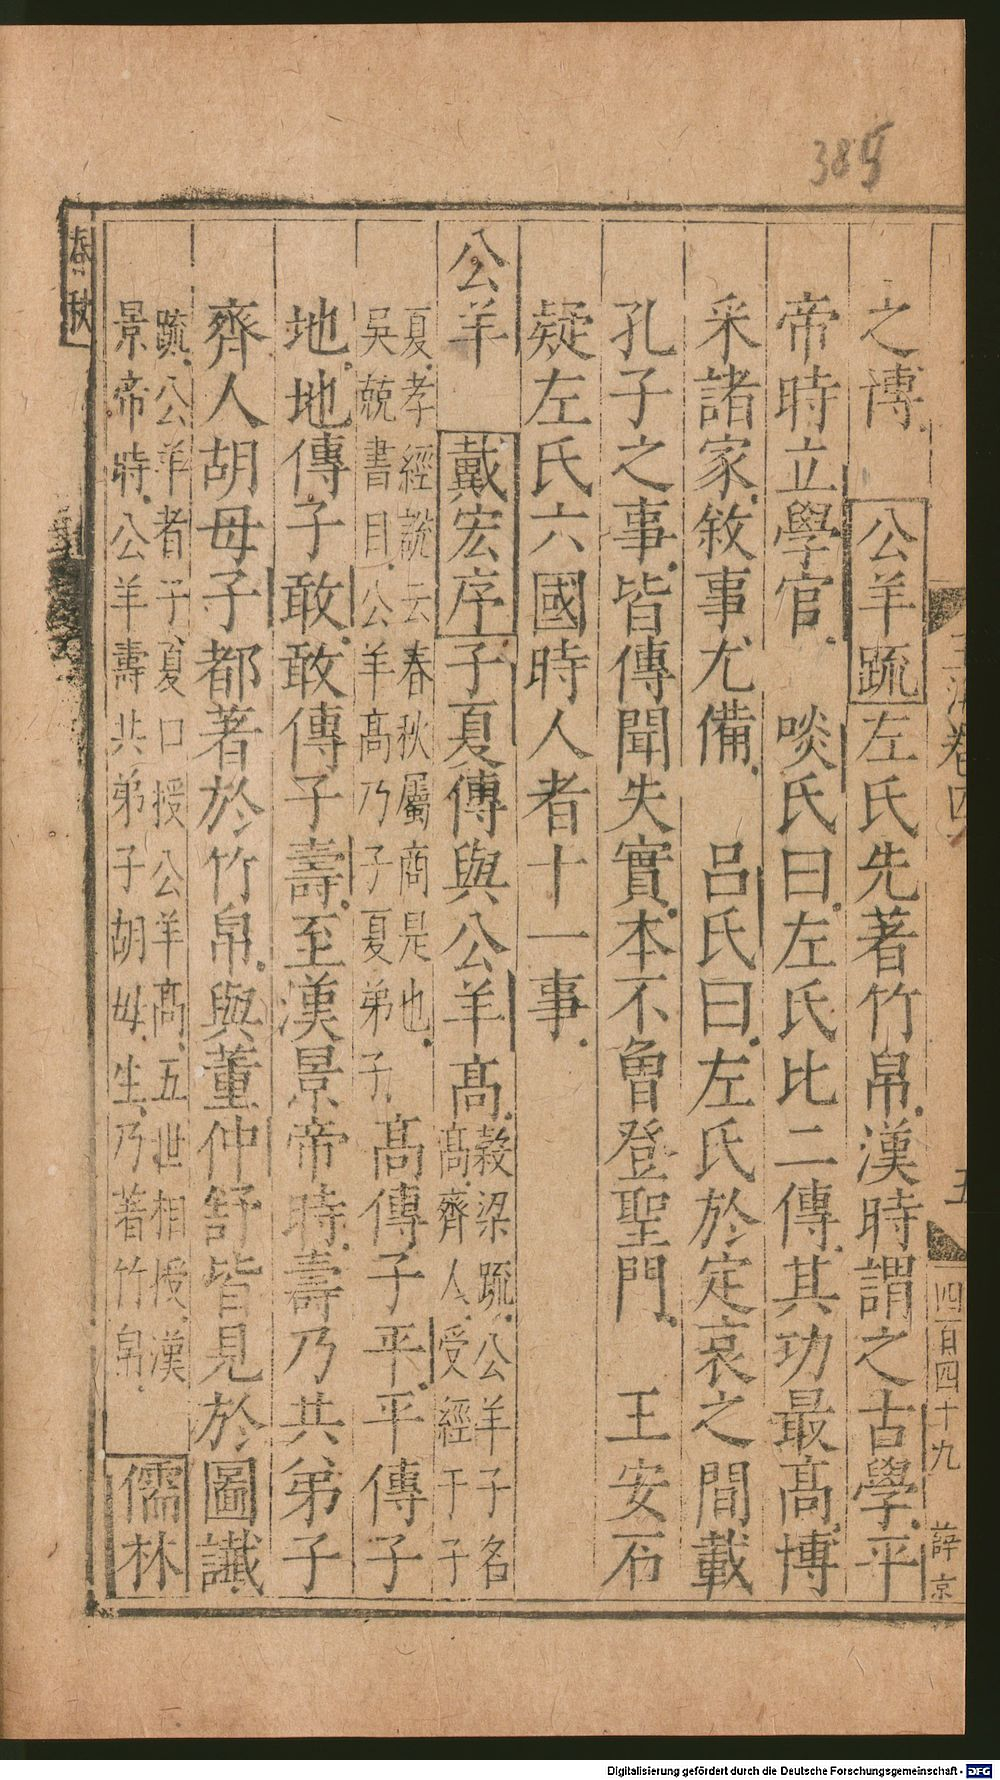 385
玉海卷四
五
四百四十九
薛京
之博 公羊疏左氏先著竹帛漢時謂之古學平
帝時立學官 啖氏曰左氏比二傳其功最高博
采諸家敘事尤備 呂氏曰左氏於定哀之間載
孔子之事皆傳聞失實本不曾登聖門 王安石
疑左氏六國時人者十一事
公羊 戴宏序子夏傳與公羊高穀梁疏公羊子名
高齊人受經于子
夏孝經說云春秋屬商是也
吳兢書目公羊高乃子夏弟子 高傳子平平傳子
地地傳子敢敢傳子壽至漢景帝時壽乃共弟子
齊人胡毋子都著於竹帛與董仲舒皆見於圖讖
疏公羊者子夏口授公羊高五世相授漢
景帝時公羊壽共弟子胡毋生乃著竹帛 儒林
春秋
Digitalisierung gefördert durch die Deutsche Forschungsgemeinschaft - DFG